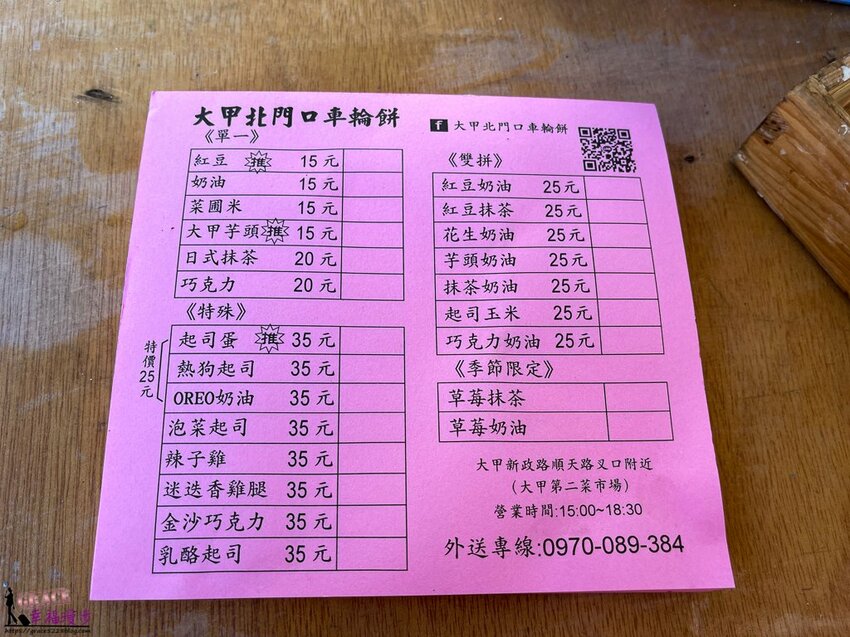 大甲北門口車輪餅
《單一》
紅豆 推 15元
奶油 15元
菜圃米 15元
大甲芋頭 推 15元
日式抹茶 20元
巧克力 20元
《特殊》
特價25元
起司蛋 推 35元
熱狗起司 35元
OREO奶油 35元
泡菜起司 35元
辣子雞 35元
迷迭香雞腿 35元
金沙巧克力 35元
乳酪起司 35元
f 大甲北門口車輪餅
《雙拼》
紅豆奶油 25元
紅豆抹茶 25元
花生奶油 25元
芋頭奶油 25元
抹茶奶油 25元
起司玉米 25元
巧克力奶油 25元
《季節限定》
草莓抹茶
草莓奶油
大甲新政路順天路叉口附近
(大甲第二菜市場)
營業時間:15:00~18:30
外送專線:0970-089-384